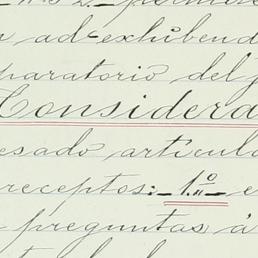 n ad-exhibend
paratorio del
Considera
esado articul
receptos: 1.º e
preguntas á